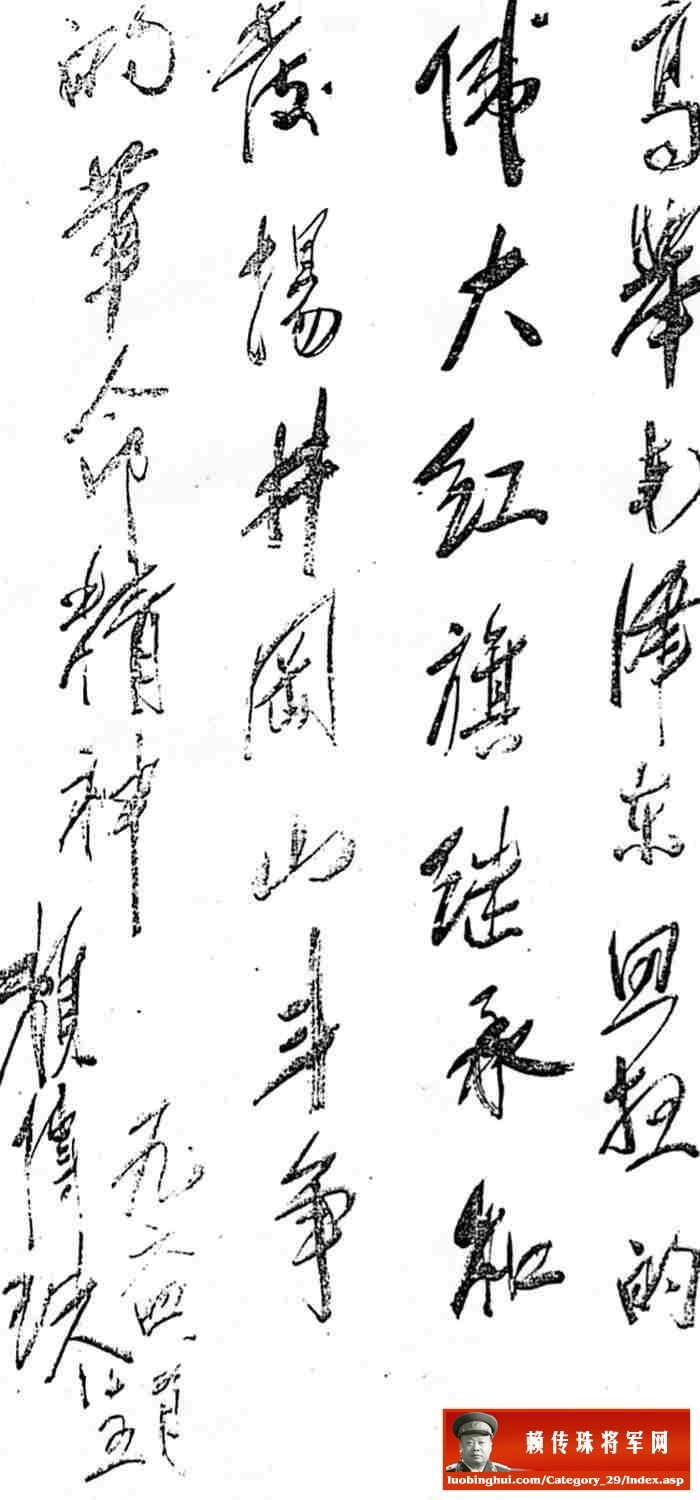 高举毛泽东思想的
伟大红旗继承和
發揚井岡山斗争
的革命精神
九六四
賴傳珠
赖传珠将军网
luobinghui.com/Category_29/Index.asp